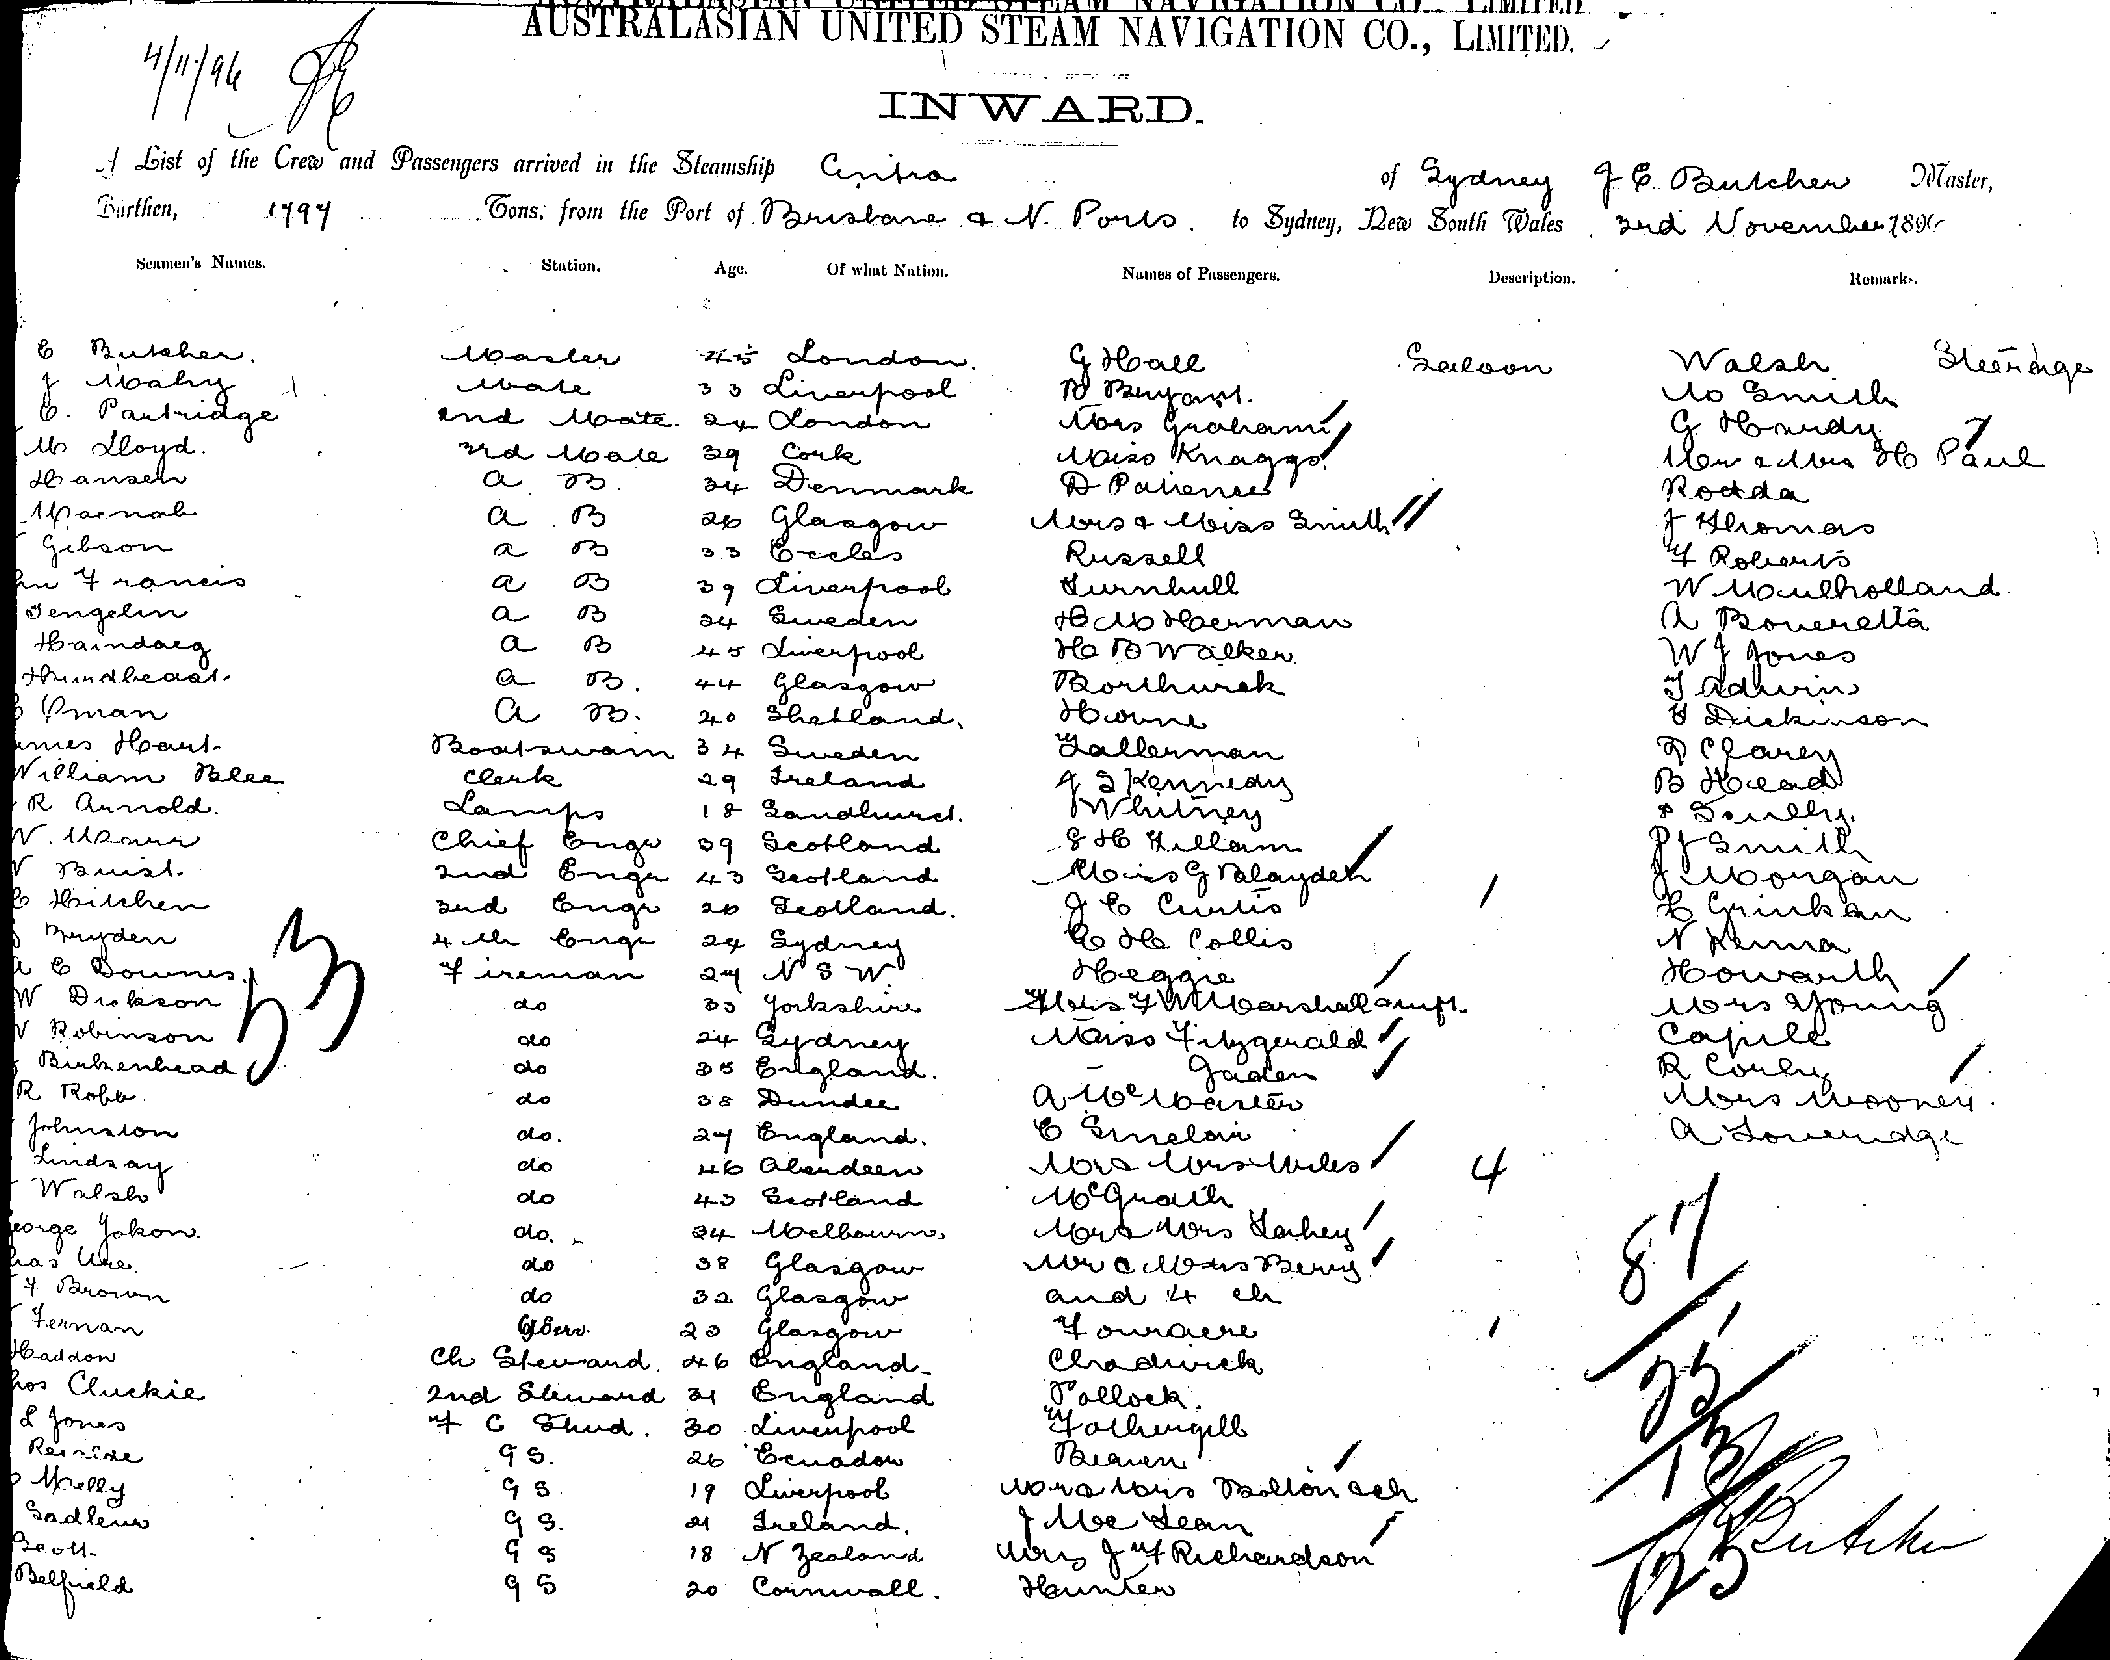 AUSTRALASIAN UNITED STEAM NAVIGATION CO., LIMITED.
4/11/96
INWARD.
A List of the Crew and Passengers arrived in the Steamship Cintra of Sydney J E Butcher Master,
Burthen, 1797 Tons, from the Port of Brisbane & N. Ports to Sydney, New South Wales 3rd November 1896
Seamen's Names. Station. Age. Of what Nation. Names of Passengers. Description. Remarks.
E Butcher. Master 45 London. G Hall Saloon Walsh Steerage
J Mahy Mate 33 Liverpool B Bryant. M Smith
C. Partridge 2nd Mate. 24 London Mrs Graham G Hardy
M Lloyd. 3rd Mate 39 Cork Miss Knaggs Mr & Mrs H Paul
Hansen A B. 34 Denmark D Patience Rodda
Macnab A B 26 Glasgow Mrs & Miss Smith J Thomas
Gibson A B 33 Eccles Russell F Roberts
Francis A B 39 Liverpool Turnbull W Mulholland
Tengelin A B 24 Sweden H M Herman A Boneretta
A B 45 Liverpool H B Walker W J Jones
A B. 44 Glasgow Borthwick T Adwin
Oman A B. 40 Shetland. Horne Dickinson
James Hart Boatswain 34 Sweden Fallerman Clarey
William Blee Clerk 29 Ireland J S Kennedy B Head
R Arnold. Lamps 18 Sandhurst. Whitney Scully.
W. Marr Chief Engr 39 Scotland H Killam P J Smith
Buist. 2nd Engr 43 Scotland Miss G Blayden J Morgan
C Hitchen 3rd Engr 26 Scotland. J C Curtis
Bryden 4th Engr 24 Sydney E H Collis N Kenna
E Downes Fireman 27 N S W Heggie Howarth
W Dickson do 33 Yorkshire F W Marshall Mrs Young
Robinson do 24 Sydney Miss Fitzgerald
Birkenhead do 35 England. Jaden R Corby
R Robb do 38 Dundee A McMaster Mrs Mooney.
Johnston do. 27 England. E Sinclair A Loveridge
Lindsay do 46 Aberdeen Mr & Mrs Miles 4
Walsh do 43 Scotland McGrath
George Yokon. do. 34 Melbourne. Mr & Mrs Lahey 87
Chas Ure. do 38 Glasgow Mr & Mrs Berry
F Brown do 32 Glasgow and 4 ch
Fernan 23 Glasgow Fouracre
Haddon Ch Steward. 46 England Chadwick 25
Thos Cluckie 2nd Steward 31 England Pollock.
L Jones F C Stwd. 30 Liverpool Fothergill
G S. 26 Ecuador Beaven 13
G S 19 Liverpool Mr & Mrs Bolton & ch
G S. 21 Ireland. J McLean J E Butcher
Scott G S 18 N Zealand Mrs J F Richardson
Belfield G S 20 Cornwall. Hunter 125
53